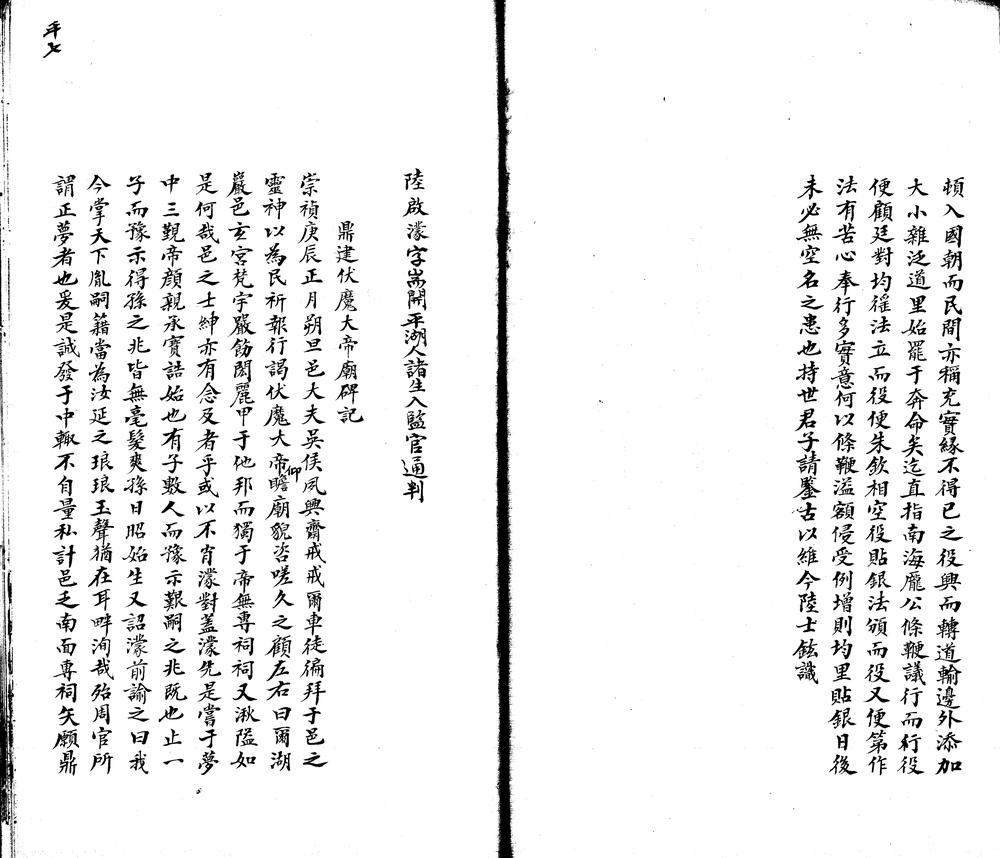 頓入國朝而民間亦稱充實緣不得已之役興而轉道輸邊外添加
大小雜泛道里始罷于奔命矣迄直指南海龐公條鞭議行而行役
便顧廷對均徭法立而役便朱欽相空役貼銀法頒而役又便第作
法有苦心奉行多實意何以條鞭溢額優受例增則均里貼銀日後
未必無空名之患也持世君子請鑒古以維今陸士鉉識
陸啟濛字嵩開平湖人諸生入監官通判
鼎建伏魔大帝廟碑記
崇禎庚辰正月朔旦邑大夫吳侯夙興齋戒戒爾車徒徧拜于邑之
靈神以為民祈報行謁伏魔大帝仰瞻廟貌咨嗟久之顧左右曰爾湖
巖邑玄宮梵宇嚴飭閎麗甲于他邦而獨于帝無專祠祠又湫隘如
是何哉邑之士紳亦有念及者乎或以不肖濛對蓋濛先是嘗于夢
中三覲帝顏親承寶誥始也有子數人而豫示艱嗣之兆既也止一
子而豫示得孫之兆皆無毫髮爽孫日昭始生又詔濛前諭之曰我
今掌天下胤嗣籍當為汝延之琅琅玉聲猶在耳畔洵哉殆周官所
謂正夢者也爰是誠發于中輙不自量私計邑乏南面專祠矢願鼎
平七